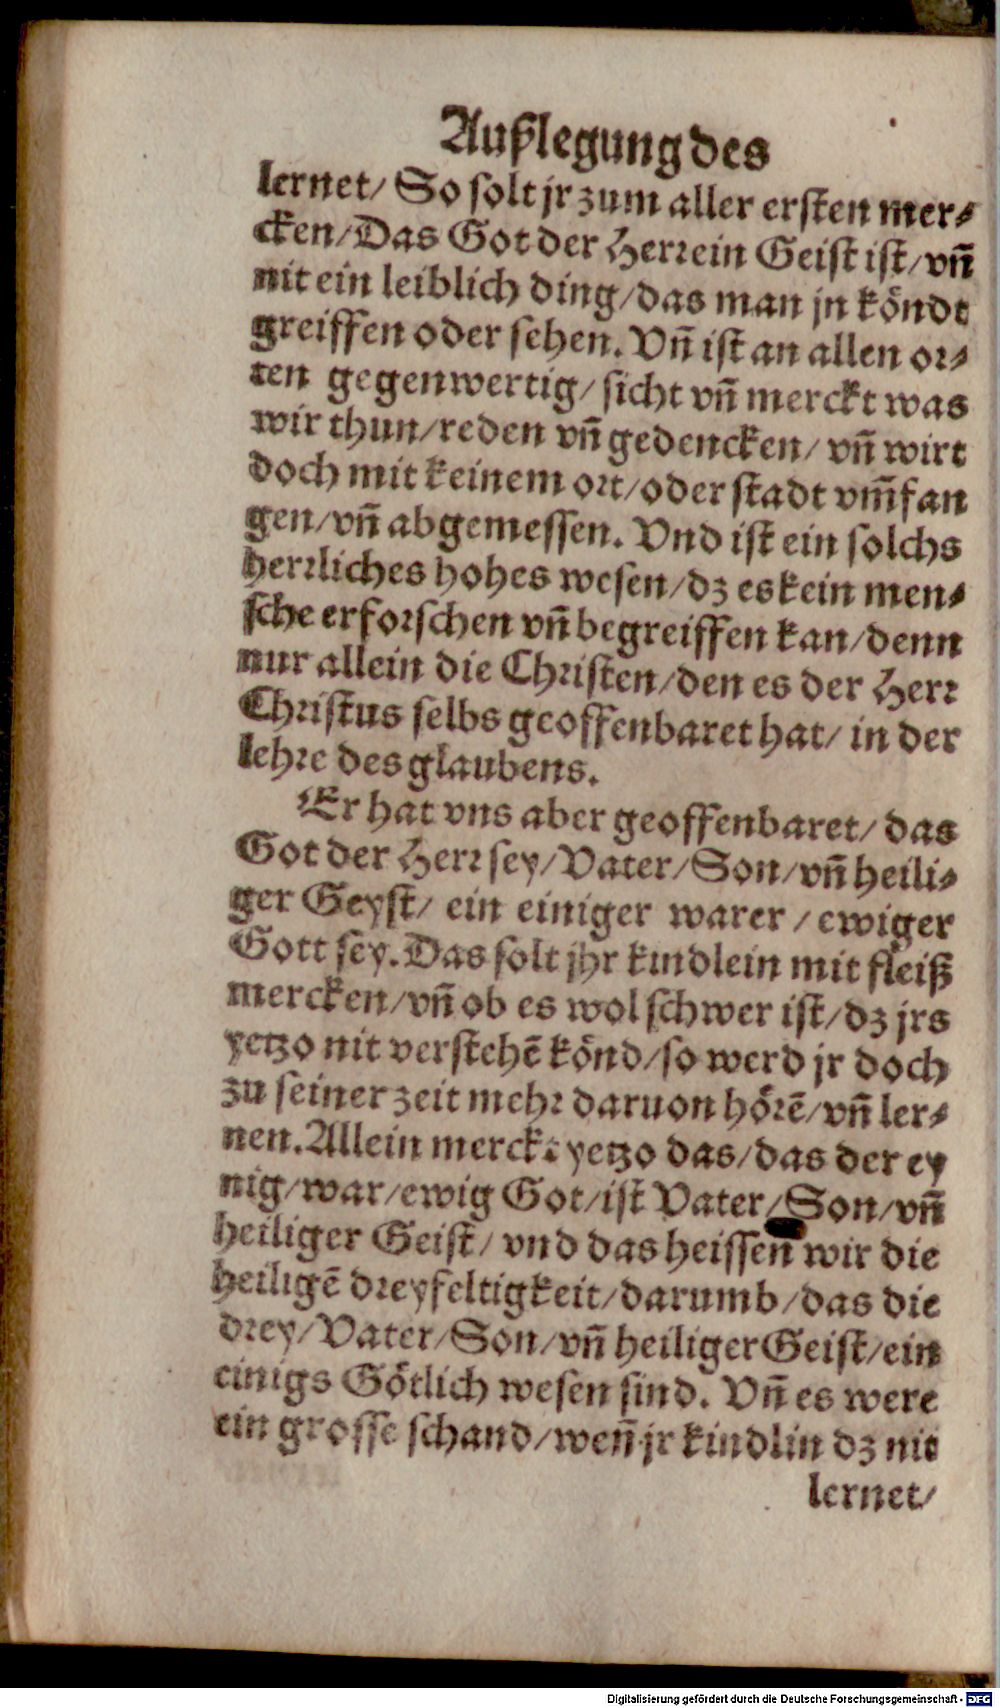 Außlegung des
lernet/ So solt jr zum aller ersten mer⸗
cken/Das Got der Herr ein Geist ist/vñ
nit ein leiblich ding/das man jn köndt
greiffen oder sehen. Vñ ist an allen or⸗
ten gegenwertig/ sicht vñ merckt was
wir thun/reden vñ gedencken/ vñ wirt
doch mit keinem ort/oder stadt vm̃fan
gen/vñ abgemessen. Vnd ist ein solchs
herrliches hohes wesen/dz es kein men⸗
sche erforschen vñ begreiffen kan/denn
nur allein die Christen/den es der Herr
Christus selbs geoffenbaret hat/ in der
lehre des glaubens.
Er hat vns aber geoffenbaret/ das
Got der Herr sey/Vater/Son/vñ heili⸗
ger Geyst/ ein einiger warer / ewiger
Gott sey. Das solt jhr kindlein mit fleiß
mercken/vñ ob es wol schwer ist/dz jrs
yetzo nit verstehẽ könd/so werd jr doch
zu seiner zeit mehr daruon hörẽ/vñ ler⸗
nen. Allein merckt yetzo das/das der ey
nig/war/ewig Got/ist Vater/Son/vñ
heiliger Geist/ vnd das heissen wir die
heiligẽ dreyfeltigkeit/darumb/das die
drey/Vater/Son/vñ heiliger Geist/ein
einigs Götlich wesen sind. Vñ es were
ein grosse schand/weñ jr kindlin dz nit
lernet/
Digitalisierung gefördert durch die Deutsche Forschungsgemeinschaft - DFG